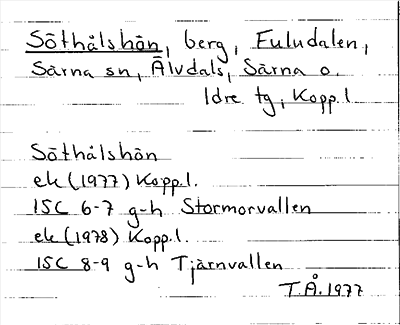 Söthålshön, berg, Fuludalen,
Särna sn, Älvdals, Särna o.
Idre tg, Kopp.l
Söthålshön
ek (1977) Kopp.l.
15C 6-7 g-h Stormorvallen
ek (1978) Kopp.l.
15C 8-9 g-h Tjärnvallen
T.Å. 1977